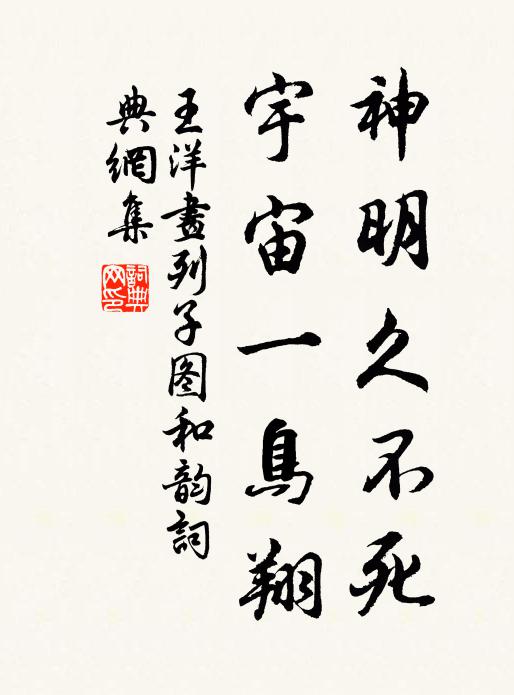 神明久不死
宇宙一鳥翔
王洋畫列子图和韵詞
典網集
詞典网印